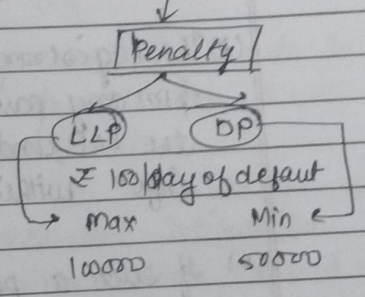 Penalty
LLP DP
₹ 100/day of defaut
Max Min
100000 50000